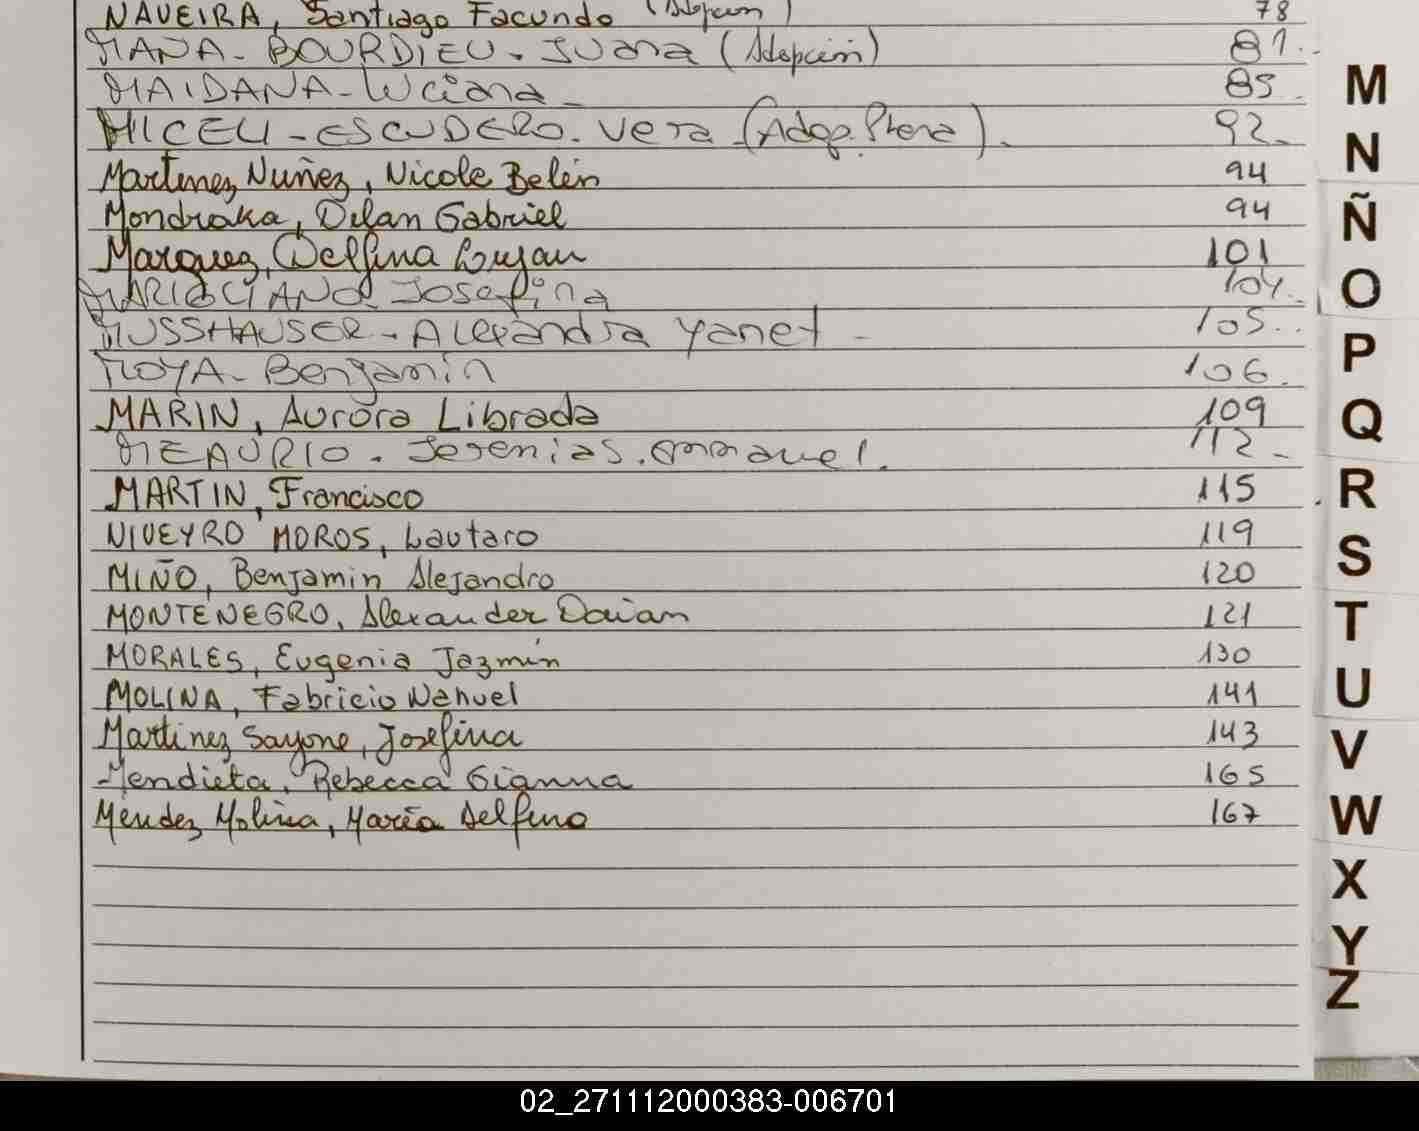 NAVEIRA, Santiago Facundo (Adopción) 78
MANA - BOURDIEU - Juana (Adopción) 81.
MAIDANA - Luciana - 85
MICELI - ESCUDERO. Vera (Adop. Plena). 92.
Martinez Nuñez, Nicole Belén 94
Mondraka, Dilan Gabriel 94
Marquez, Delfina Lujan 101
Josefina 104.
MUSSHAUSER - Alexandra Yanet - 105..
MOYA - Benjamín 106.
MARIN, Aurora Librada 109
MEAURIO - Jeremias. Emmanuel. 112 -
MARTIN, Francisco 115
NIVEYRO MOROS, Lautaro 119
MIÑO, Benjamin Alejandro 120
MONTENEGRO, Alexander Daian 121
MORALES, Eugenia Jazmín 130
MOLINA, Fabricio Nahuel 141
Martinez Sayone, Josefina 143
Mendieta, Rebecca Gianna 165
Méndez Molina, María Delfina 167
M
N
Ñ
O
P
Q
R
S
T
U
V
W
X
Y
Z
02_271112000383-006701